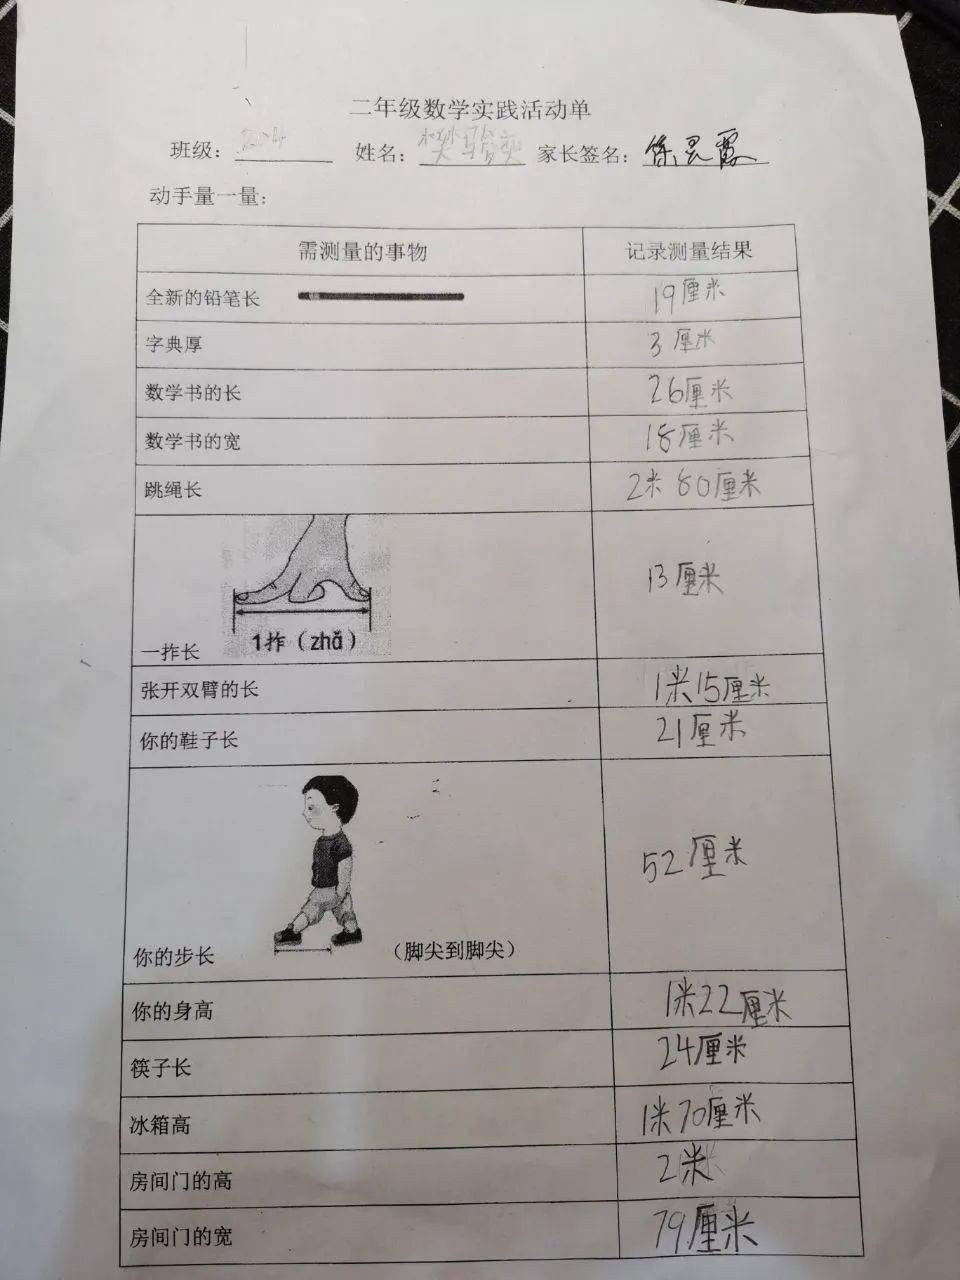 二年级数学实践活动单
班级： 姓名： 家长签名：
动手量一量：
需测量的事物 记录测量结果
全新的铅笔长 19厘米
字典厚 3厘米
数学书的长 26厘米
数学书的宽 18厘米
跳绳长 2米80厘米
1拃（zhǎ）
一拃长 13厘米
张开双臂的长 1米15厘米
你的鞋子长 21厘米
你的步长 （脚尖到脚尖） 52厘米
你的身高 1米22厘米
筷子长 24厘米
冰箱高 1米70厘米
房间门的高 2米
房间门的宽 79厘米